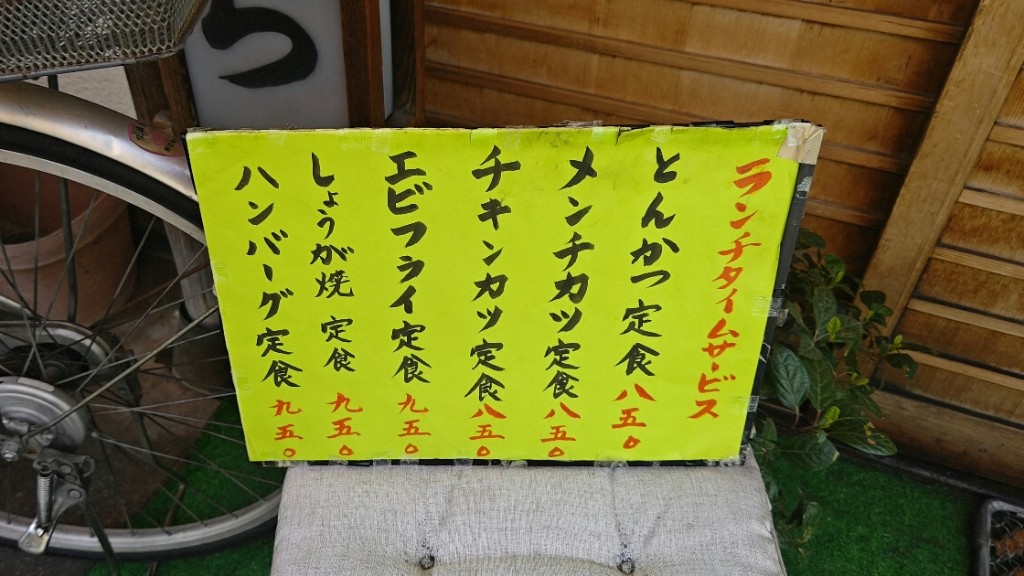 ランチタイムサービス
とんかつ定食 八五〇
メンチカツ定食 八五〇
チキンカツ定食 八五〇
エビフライ定食 九五〇
しょうが焼定食 九五〇
ハンバーグ定食 九五〇